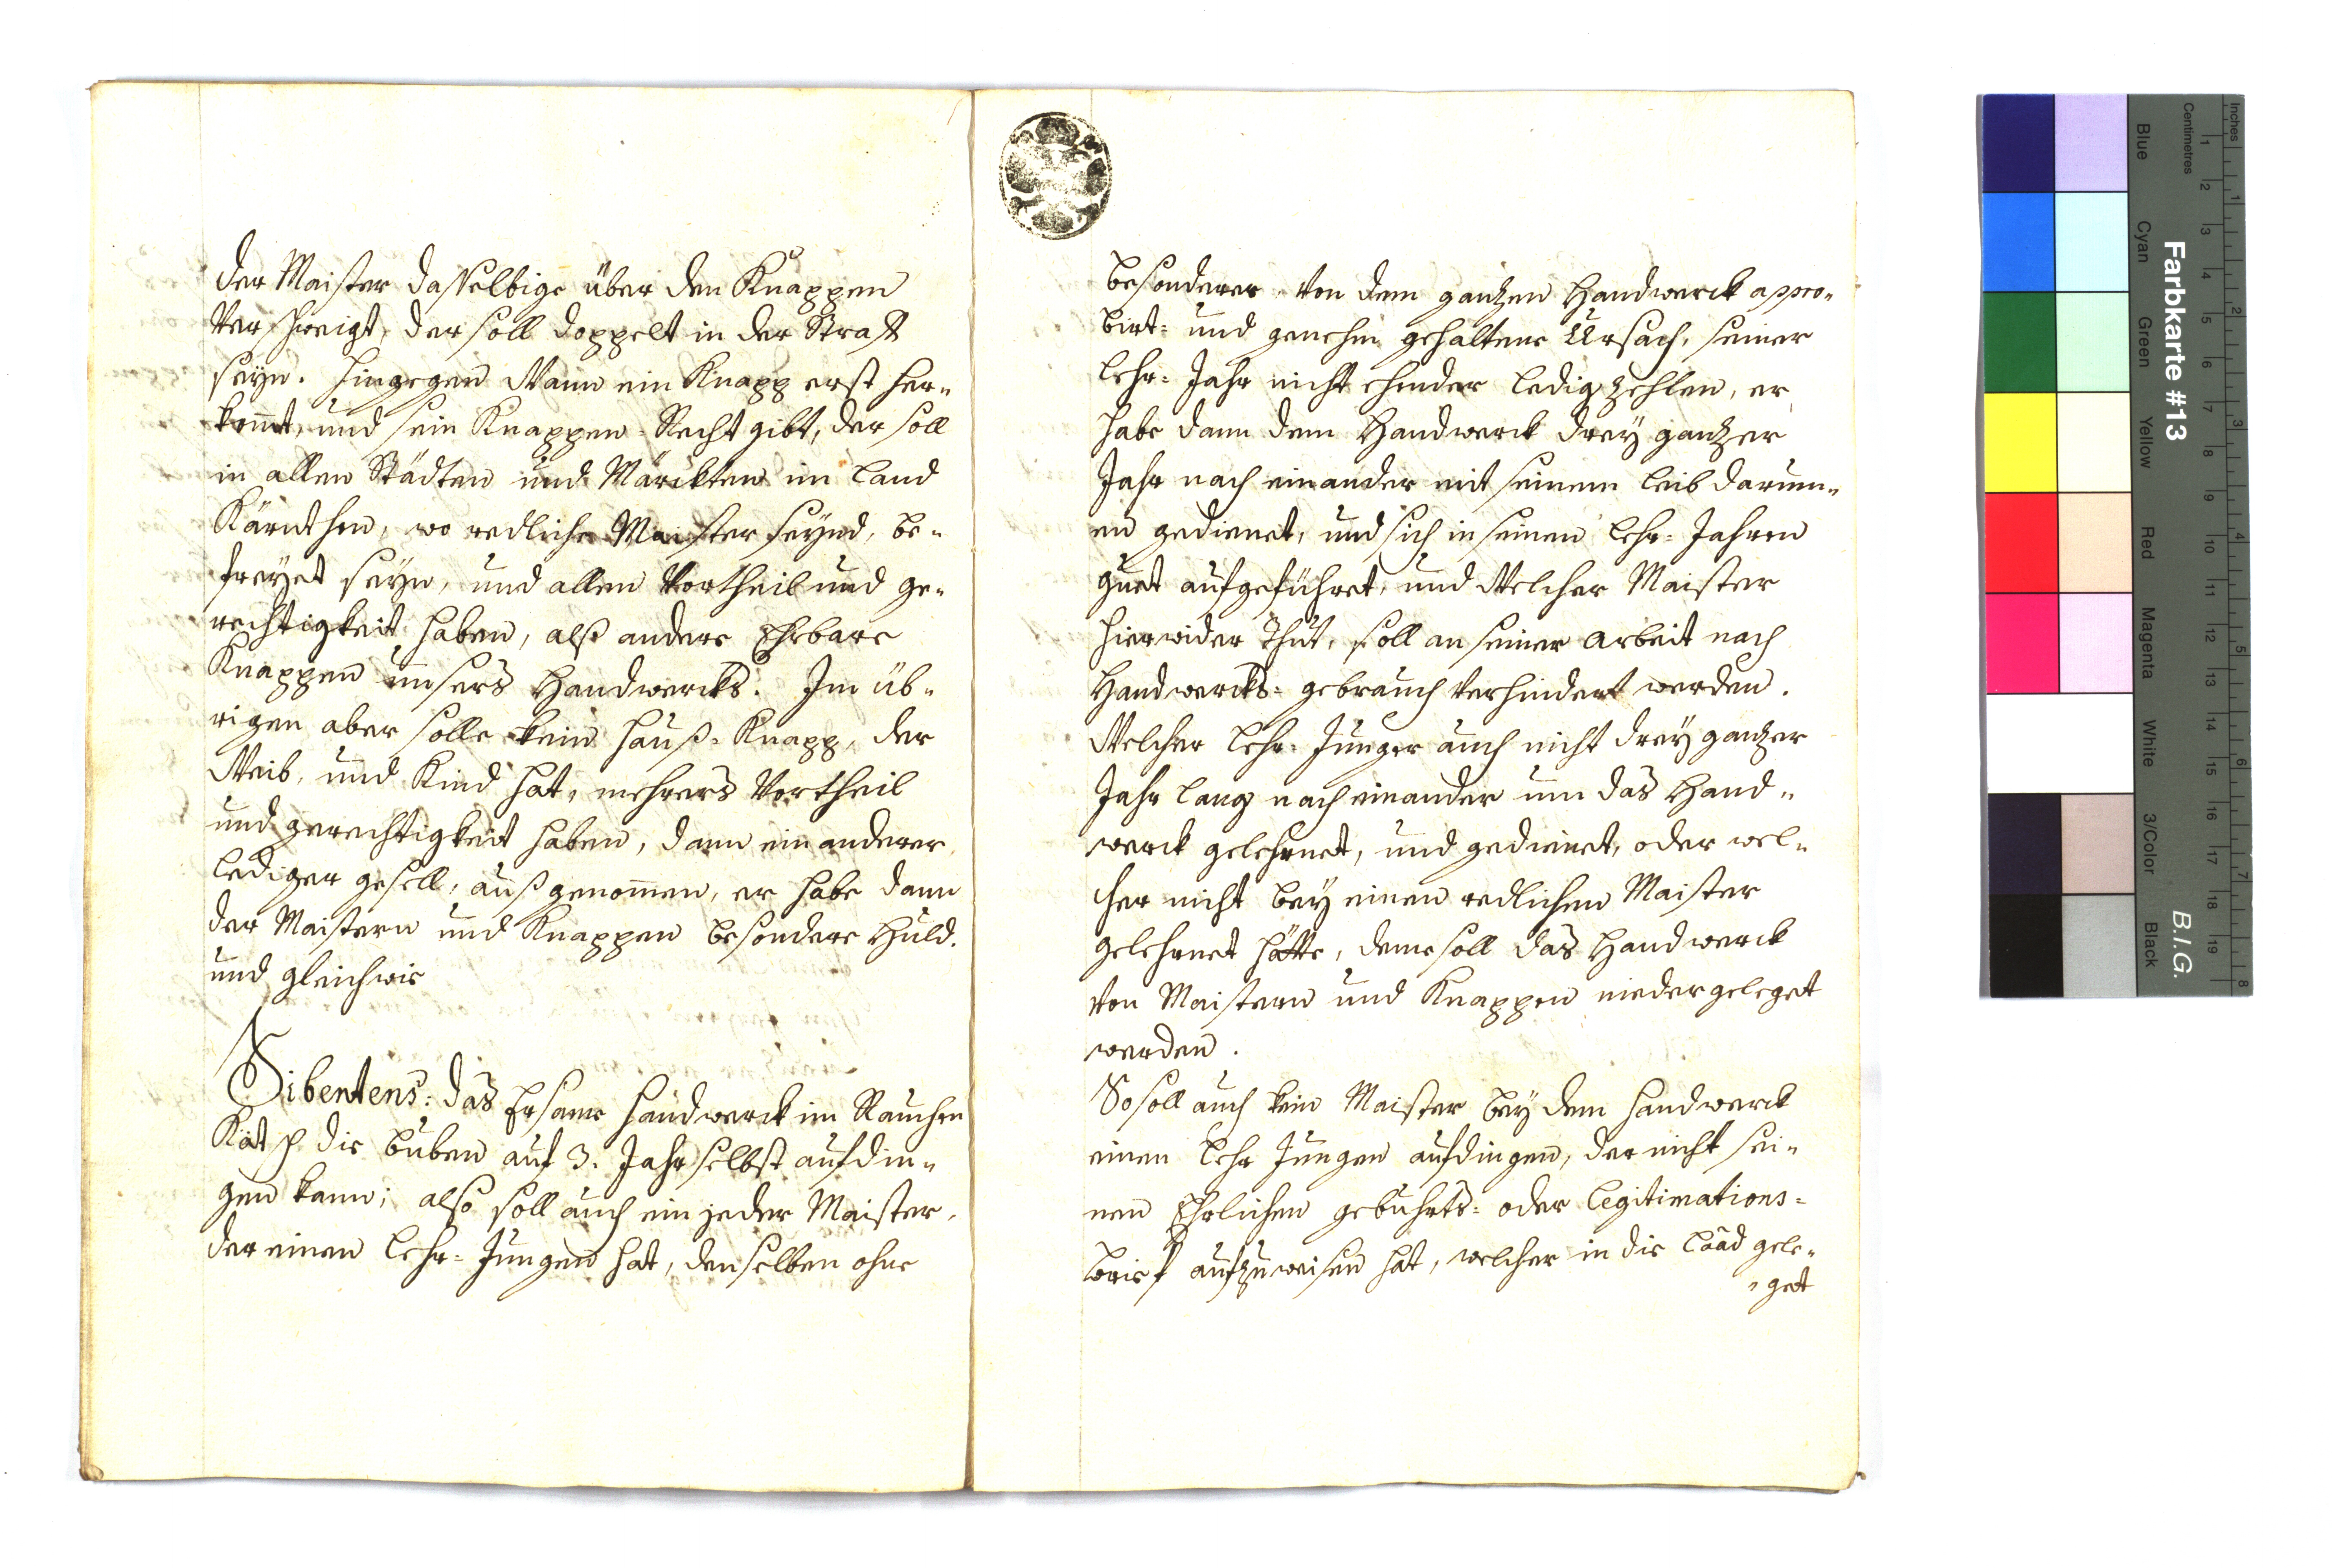 der Maister dasselbige über den Knappen
Verschweigt, der soll doppelt in der Straff
seyn. Hingegen Wann ein Knapp erst her-
kom̄t, und sein Knappen-Recht gibt, der soll
in allen Städten und Märckten im Land
Kärnthen, wo redliche Maister seynd, be-
freyet seyn, und allen Vortheil und ge-
rechtigkeit haben, alß andere Ehrbare
Knappen unsers Handwercks. Im üb-
rigen aber solle kein Hauß-Knapp, der
Weib, und Kind hat, mehrers Vortheil
und gerechtigkeit haben, dann ein anderer
lediger gesell, außgenom̄en, er habe dann
der Maistern und Knappen besondere Huld.
und gleichwie
Sibentens: das Ersame Handwerck im Rauchen
die buben auf 3. Jahr selbst aufdin-
gen kann; also soll auch ein jeder Maister,
der einen Lehr-Jungen hat, denselben ohne
besonderer von dem gantzen Handwerck appro-
birt- und genehm gehaltene Ursach, seiner
Lehr-Jahr nicht ehender ledig zehlen, er
habe dann dem Handwerck drey gantzer
Jahr nach einander mit seinem leib darum-
en gedienet, und sich in seinen Lehr-Jahren
guet aufgeführet, und Welcher Maister
hierwider Thut, soll an seiner arbeit nach
Handwercks-gebrauch Verhindert werden.
Welcher Lehr-Junger auch nicht drey gantzer
Jahr lang nach einander um das Hand-
werck gelehrnet, und gedienet, oder wel-
cher nicht bey einen redlichen Maister
gelehrnet hätte, deme soll das Handwerck
von Maistern und Knappen nidergeleget
werden.
So soll auch kein Maister bey dem Handwerck
einen Lehr Jungen aufdingen, der nicht sei-
nen Ehrlichen geburhts- oder legitimations-
brief aufzuweisen hat, welcher in die Laad gele-
-get
Farbkarte #13
B.I.G.
Inches
Centimetres
Blue
Cyan
Green
Yellow
Red
Magenta
White
3/Color
Black
1 2 3 4 5 6 7 8 9 10 11 12 13 14 15 16 17 18 19
1 2 3 4 5 6 7 8